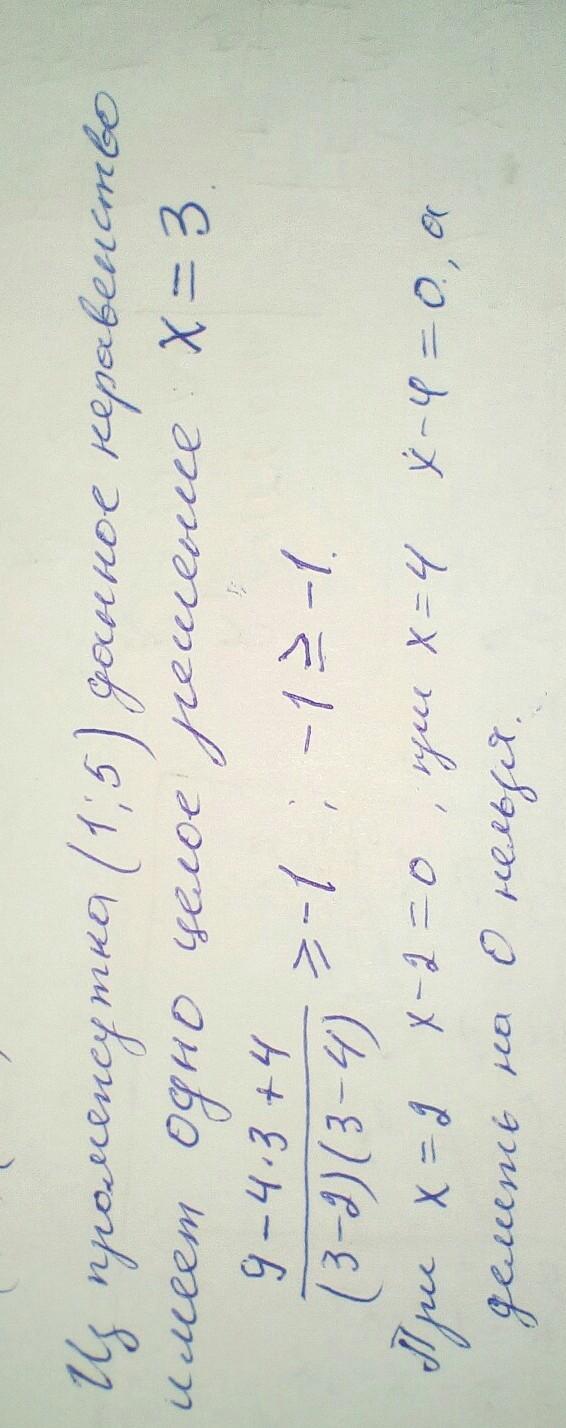 Из промежутка (1; 5) данное неравенство
имеет одно целое решение x = 3.
9 - 4·3 + 4
(3-2)(3-4) ≥ -1 ; -1 ≥ -1.
При x = 2 x - 2 = 0, при x = 4 x - 4 = 0, а
делить на 0 нельзя.